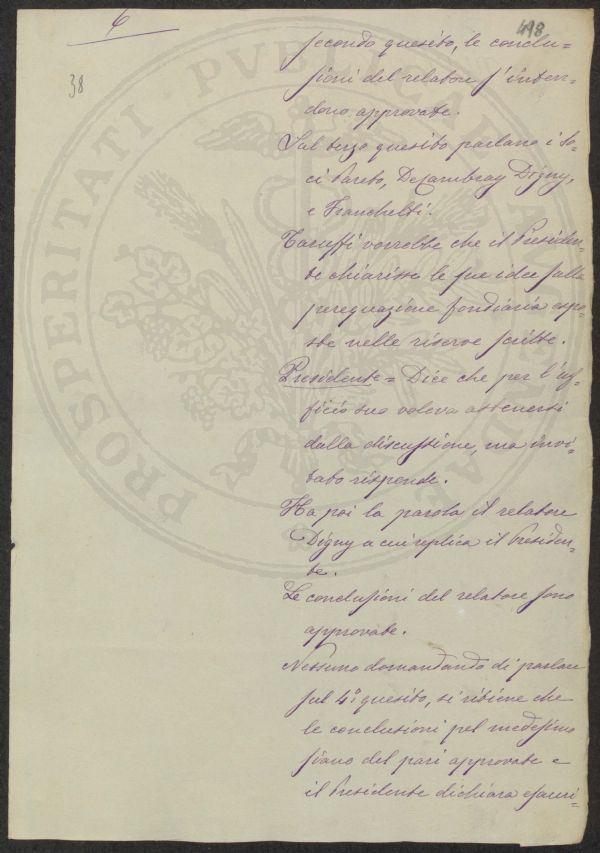 6
498
38
secondo quesito, le conclu=
sioni del relatore s'inten=
dono approvate.
Sul terzo quesito parlano i So=
ci Pareto, DeCambray Digny,
e Franchetti.
Taruffi vorrebbe che il Presiden=
te chiarisse le sue idee sulla
perequazione fondiaria espo=
ste nelle riserve scritte.
Presidente = Dice che per l'uf=
ficio suo voleva astenersi
dalla discussione, ma invi=
tato risponde.
Ha poi la parola il relatore
Digny a cui replica il Presiden=
te.
Le conclusioni del relatore sono
approvate.
Nessuno domandando di parlare
sul 4º quesito, si ritiene che
le conclusioni pel medesimo
siano del pari approvate e
il Presidente dichiara esauri=
PROSPERITATI PVBLICAE AVGENDAE